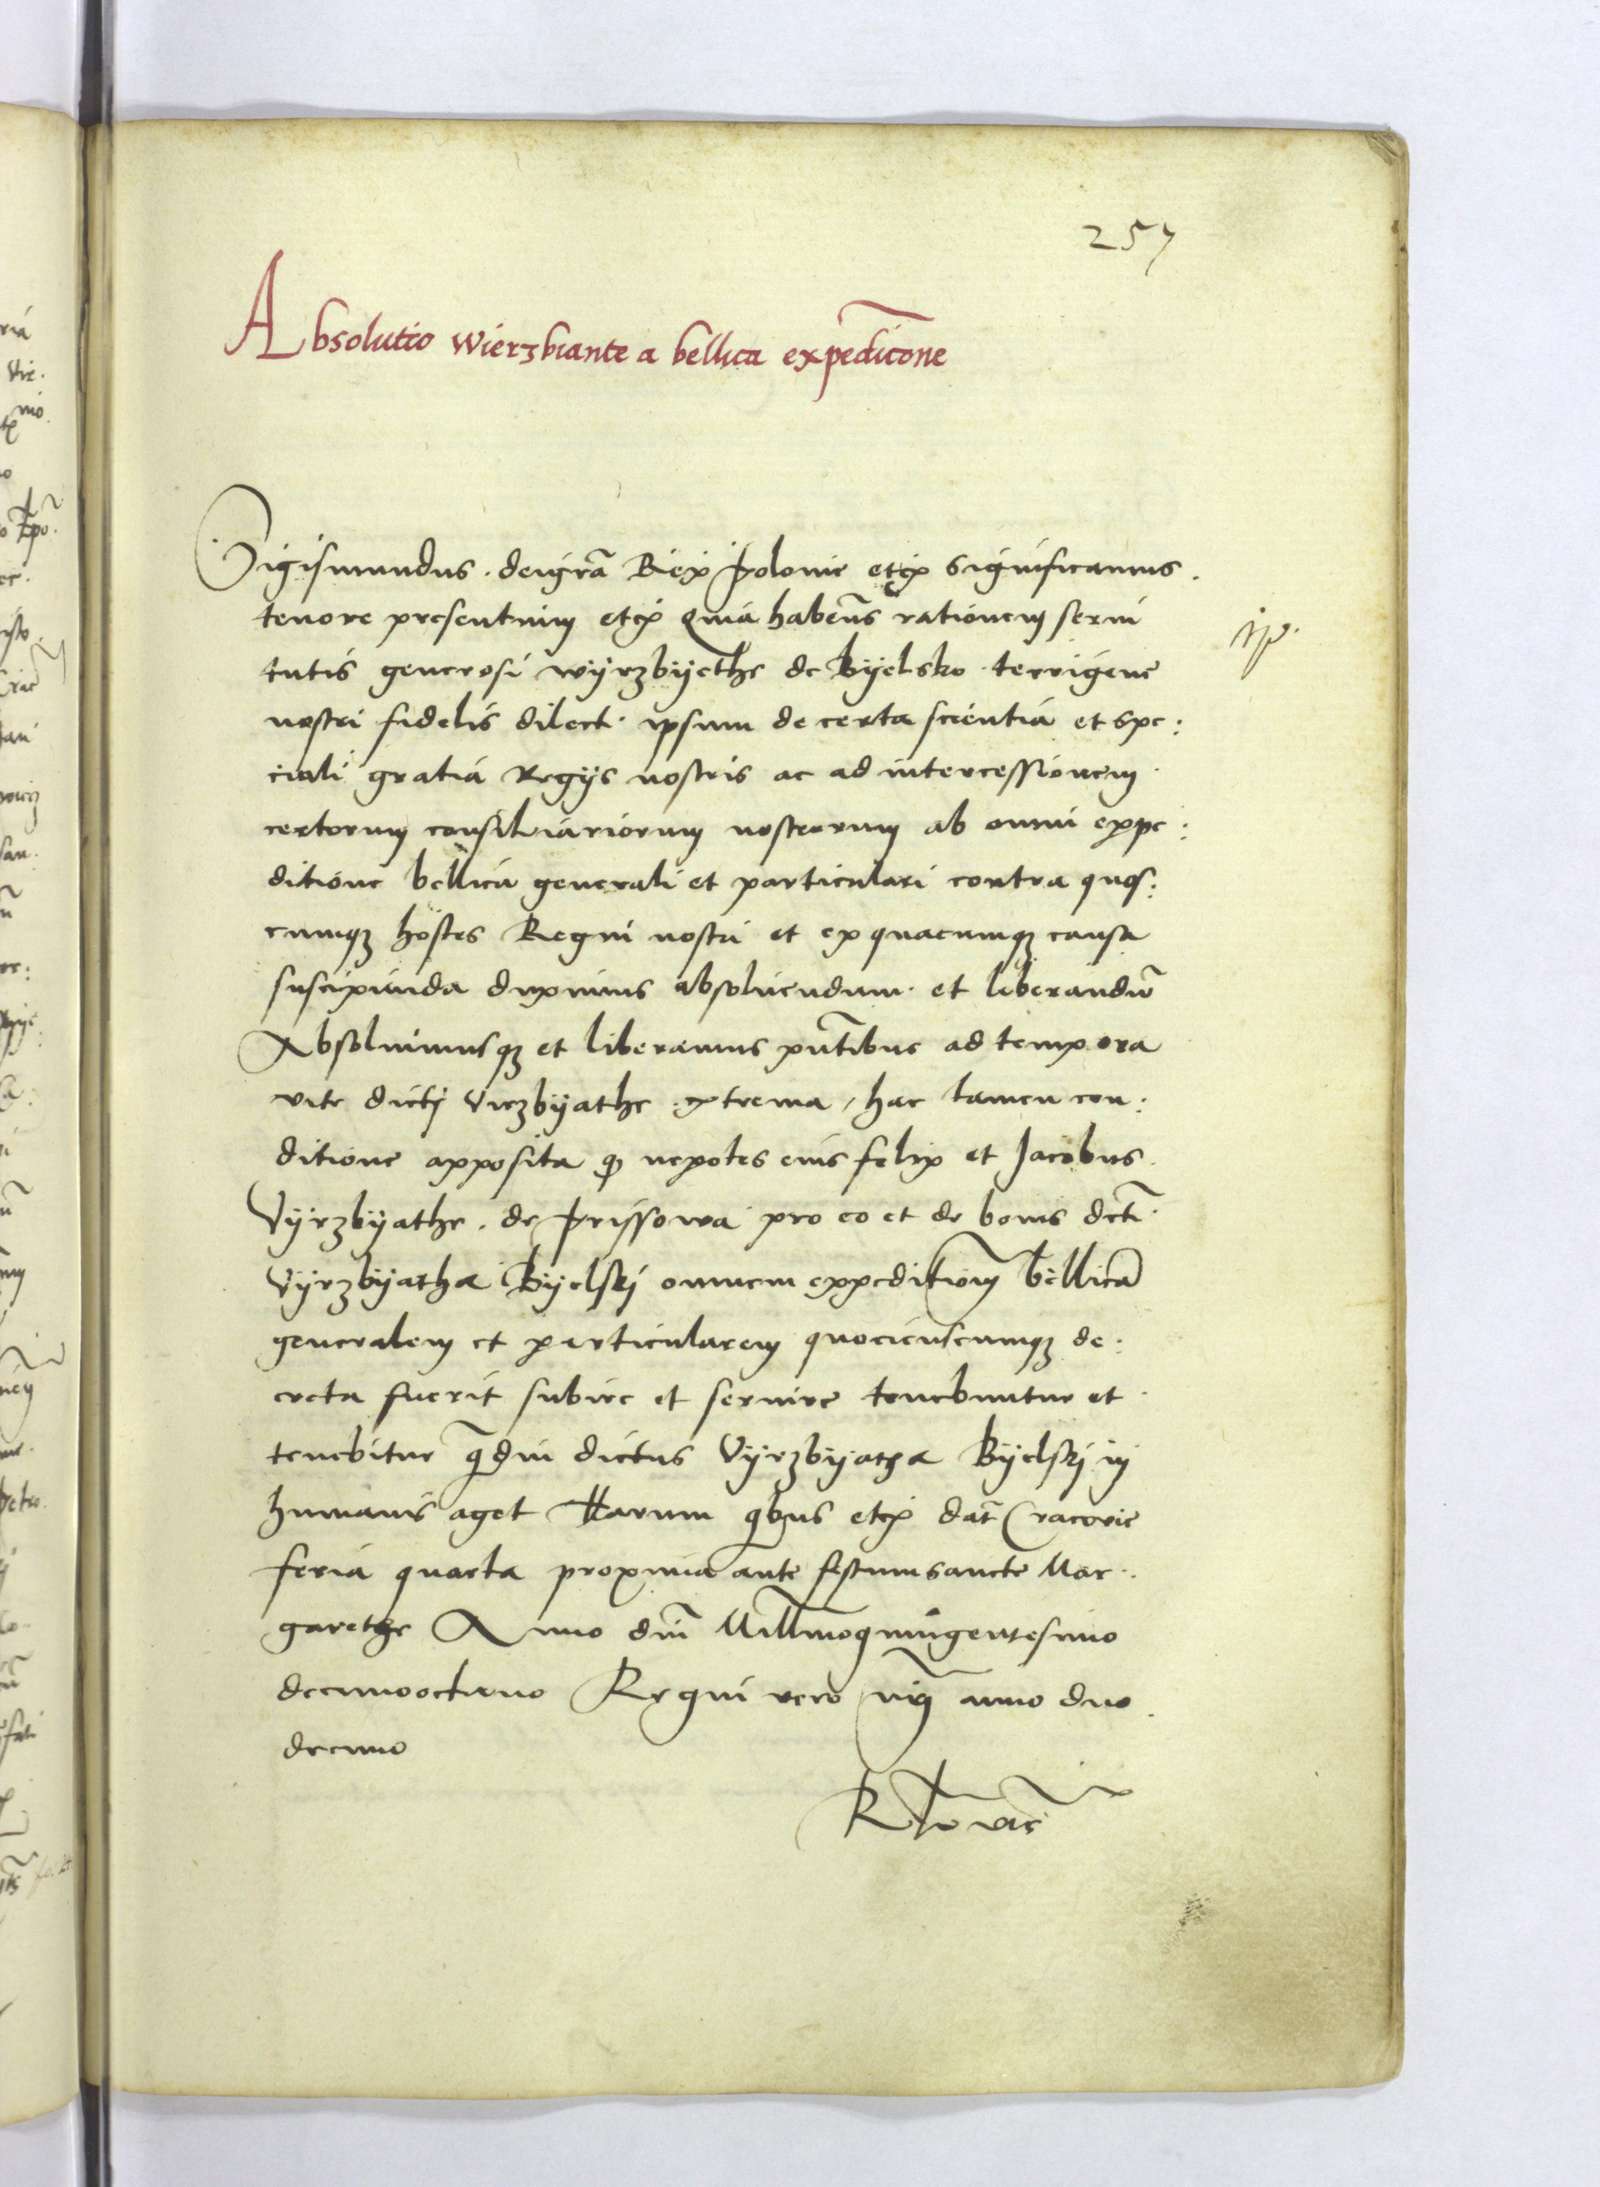 257
Absolutio Wierzbiante a bellica expeditone
Sigismundus deigra Rex Polonie etc Significamus
tenore presentium etc Quia habens rationem servi
tutis generosi Wyrzbyethe de Byelsko terrigene
nostri fidelis dilecti ipsum de certa scientia et spe:
ciali gratia Regys nostris ac ad intercessionem
certorum consiliariorum nostrorum ab omni expe:
ditione bellica generali et particulari contra quos:
cumq hostes Regni nostri et ex quacumq causa
suscipienda duximus absoluendum et liberandu
Absoluimusq et liberamus pntibus ad tempora
vite dicti Virzbyathe extrema, hac tamen con:
ditione apposita q nepotes eius felix et Jacobus
Vyrzbyathe de Prissowa pro eo et de bonis dcti
Vyrzbyatha Byelski omnem expeditionem bellica
generalem et particularem quocienscumq de:
creta fuerit subire et seruire tenebuntur et
tenebitur qdiu dictus Vyrzbyatha Byelski in
humanis aget Harum qbus etc dat Cracovie
feria quarta proxima ante festum sancte Mar:
garethe Anno dni Millmoquingentesimo
decimooctauo Regni vero nri anno duo
decimo